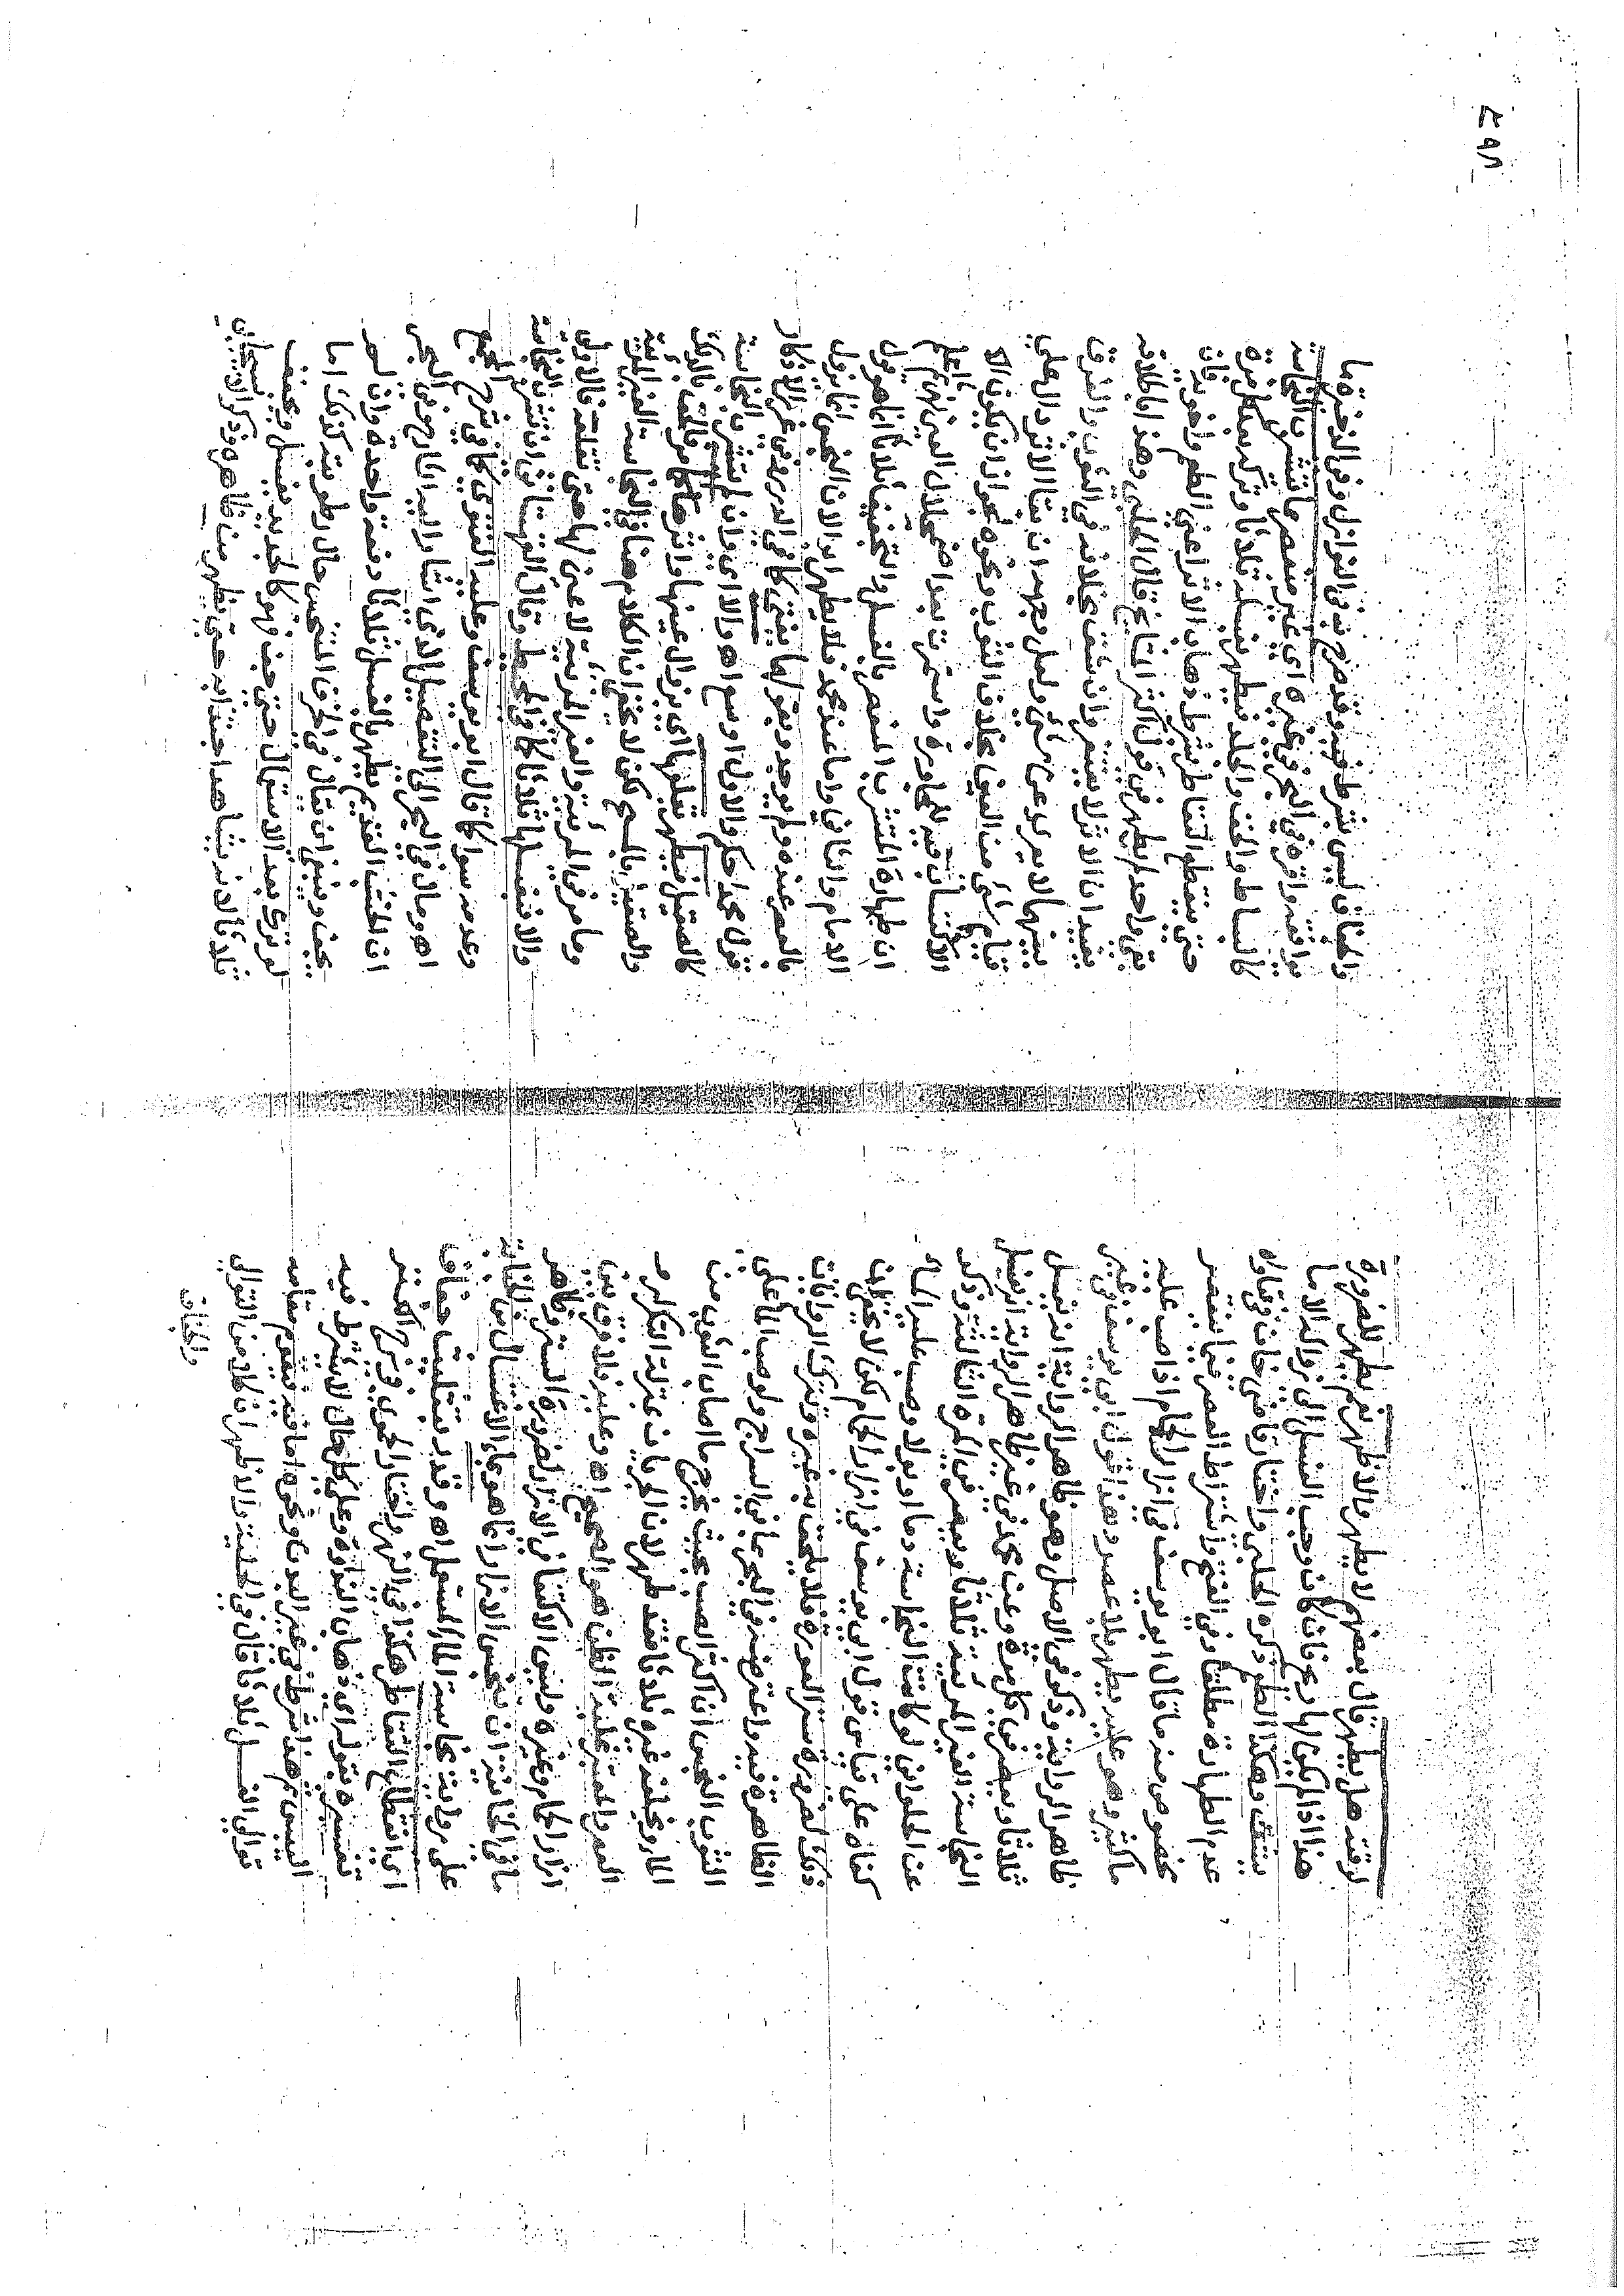 لرقته هل يطهر قال بعضهم لا يطهر والاظهر نعم يطهر للضرورة
هذا اذا لم يكن لها ريح فان كان وجب الغسل الى زواله الا ما
يشق وهكذا الطعم ذكره الحلبي واختار قاضي خان في فتاواه
عدم الطهارة مطلقا وفي الفتح واشتراط العصر فيما ينعصر
مخصوص منه ما قال ابو يوسف في ازار الحمام اذا صب عليه
ماء كثير وهو عليه يطهر بلا عصر وهذا قول ابي يوسف في غير
ظاهر الرواية وذكر في الاصل وهو ظاهر الرواية انه يغسل
ثلاثا ويعصر في كل مرة وعن محمد في غير ظاهر الرواية انه يغسل
النجاسة الغير المرئية ثلاثا ويعصر في المرة الثالثة وذكر
عن الحلواني لو كانت النجاسة دما او بولا وصب عليه الماء
كفاه على قياس قول ابي يوسف في ازار الحمام لكن لا يخفى ان
ذلك لضرورة ستر العورة فلا يلحق به غيره وتترك الروايات
الظاهرة فيه واعترضه في البحر بما في السراج ولو صب الماء على
الثوب النجس ان اكثر الصب بحيث يخرج ما اصاب الثوب من
الماء ويخلفه غيره ثلاثا فقد طهر لان الجريان بمنزلة التكرير
العصر والمعتبر غلبة الظن هو الصحيح اهـ وعليه فلا فرق بين
ازار الحمام وغيره وليس الاكتفاء في الازار لضرورة الستر وظاهر
ما في الخانية ان تنجس الازار انما هو بماء الاغتسال من الجنابة
على رواية نجاسة الماء المستعمل اهـ وقدر بتثليث جفاف
اى انقطاع التقاطر هكذا في النهر واختار الحموي في شرحه
تفسيره بقوله اي ذهاب النداوة وعلى كل حال لا يشترط فيه
اليبس ثم هذا شرط في غير البدن ونحوه اما فيه فيقوم مقامه
توالي الغسل ثلاثا قال في الحلية والاظهر ان كلا من التوالي
والجفاف
والجفاف ليس بشرط فيه وقد صرح به في النوازل وفي الذخيرة ما
يوافقه واقره في البحر وغيره اي غير منعصر ما تتشرب النجاسة
كالبساط والخف والجلد فيطهر بغسله ثلاثا وتركه بعد كل مرة
حتى ينقطع التقاطر بشرط ذهاب الاثر اعني الطعم واخويه فان
بقي واحد لم يطهر في قول اكثر المشايخ قال الحلبي وهذا باطلاقه
يفيد ان الاثر لا يعتبر وان شق بخلافه في الثوب والفرق
بينهما لا يعرى عن شيء ولعل وجهه ان بقاء الاثر دال على
قيام شيء من العين بخلاف الثوب ونحوه لجواز ان يكون الا
الاكتساب فيه للمجاورة واستمرت بعد اضمحلال العين منه واعلم
ان طهارة المتشرب المنعصر بالغسل والتجفيف ثلاثا انما هو قول
الامام والثاني واما عند محمد فلا يطهر ابدا لان النجس انما يزول
بالعصر عنده ولم يوجد وبقولهما يفتى كما في الدرر وفي غرر الاذكار
قول محمد احكم والاول اوسع اهـ والا اي وان لم يتشرب النجاسة
كالصقيل فيطهر بقلعها اي بزوال عينها واثرها كما مر في الخف بالدلك
والصقيل بالمسح لكن لا يخفى ان الكلام هنا في النجاسة الغير المرئية
وما مر في المرئية والغير المرئية لا عين لها حتى تقلع فالاولى
والا فبغسلها ثلاثا كما في المحيط وقال القهستاني ان تشرب النجاسة
وعدمه سواء كما قال ابو يوسف وعليه الفتوى كما في شرح المجمع
اهـ ومال في البحر الى التفصيل الذي اشار اليه الشارح وفي البحر
ان الخشب القديم يطهر بالغسل ثلاثا دفعة واحدة وان لم
يجف وينبغي ان يقال في الخزف المتنجس حال رطوبته كذلك اما
لو ترك بعد الاستعمال حتى جف فهو كالجديد يغسل ويجفف
ثلاثا لانه يشاهد اجتذابه حتى يظهر من ظاهره وذكر الاسبيجابي